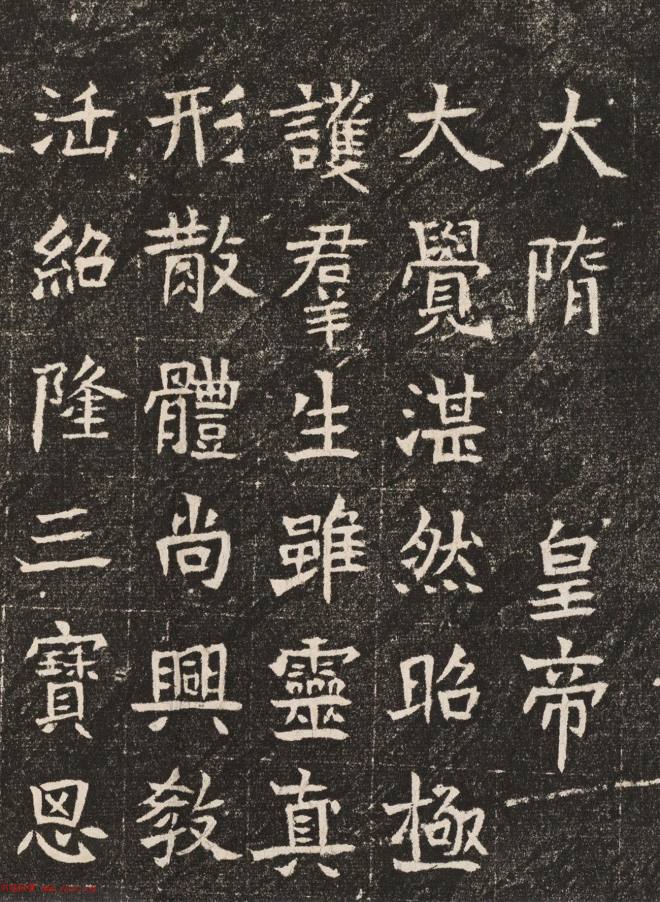 大隋 皇帝
大覺湛然昭極
護羣生雖靈真
形散體尚興教
活紹隆三寶恩